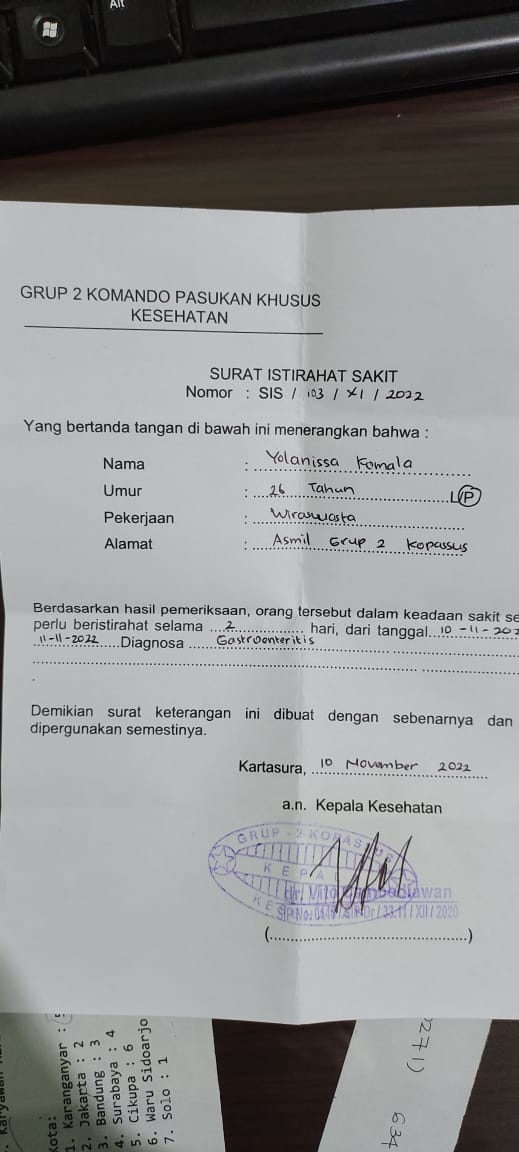 Alt
GRUP 2 KOMANDO PASUKAN KHUSUS
KESEHATAN
SURAT ISTIRAHAT SAKIT
Nomor : SIS / 103 / XI / 2022
Yang bertanda tangan di bawah ini menerangkan bahwa :
Nama : Yolanissa Komala
Umur : 26 Tahun L/P
Pekerjaan : Wiraswasta
Alamat : Asmil Grup 2 Kopassus
Berdasarkan hasil pemeriksaan, orang tersebut dalam keadaan sakit se
perlu beristirahat selama 2 hari, dari tanggal 10-11-202
11-11-2022 Diagnosa Gastroenteritis
Demikian surat keterangan ini dibuat dengan sebenarnya dan
dipergunakan semestinya.
Kartasura, 10 November 2022
a.n. Kepala Kesehatan
GRUP - 2 KOPASSUS
KEPALA
dr. Vito
XII / 2020
(.....................................)
Kota:
1. Karanganyar :
2. Jakarta : 2
3. Bandung : 3
4. Surabaya : 4
5. Cikupa : 6
6. Waru Sidoarjo
7. Solo : 1
0271) 634